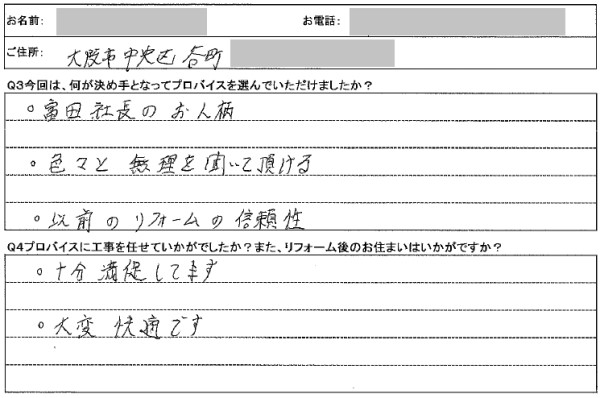 お名前: お電話:
ご住所: 大阪市中央区谷町
Q3今回は、何が決め手となってプロバイスを選んでいただけましたか?
。富田社長のお人柄
。色々と無理を聞いて頂ける
。以前のリフォームの信頼性
Q4プロバイスに工事を任せていかがでしたか?また、リフォーム後のお住まいはいかがですか?
。十分満足してます
。大変快適です